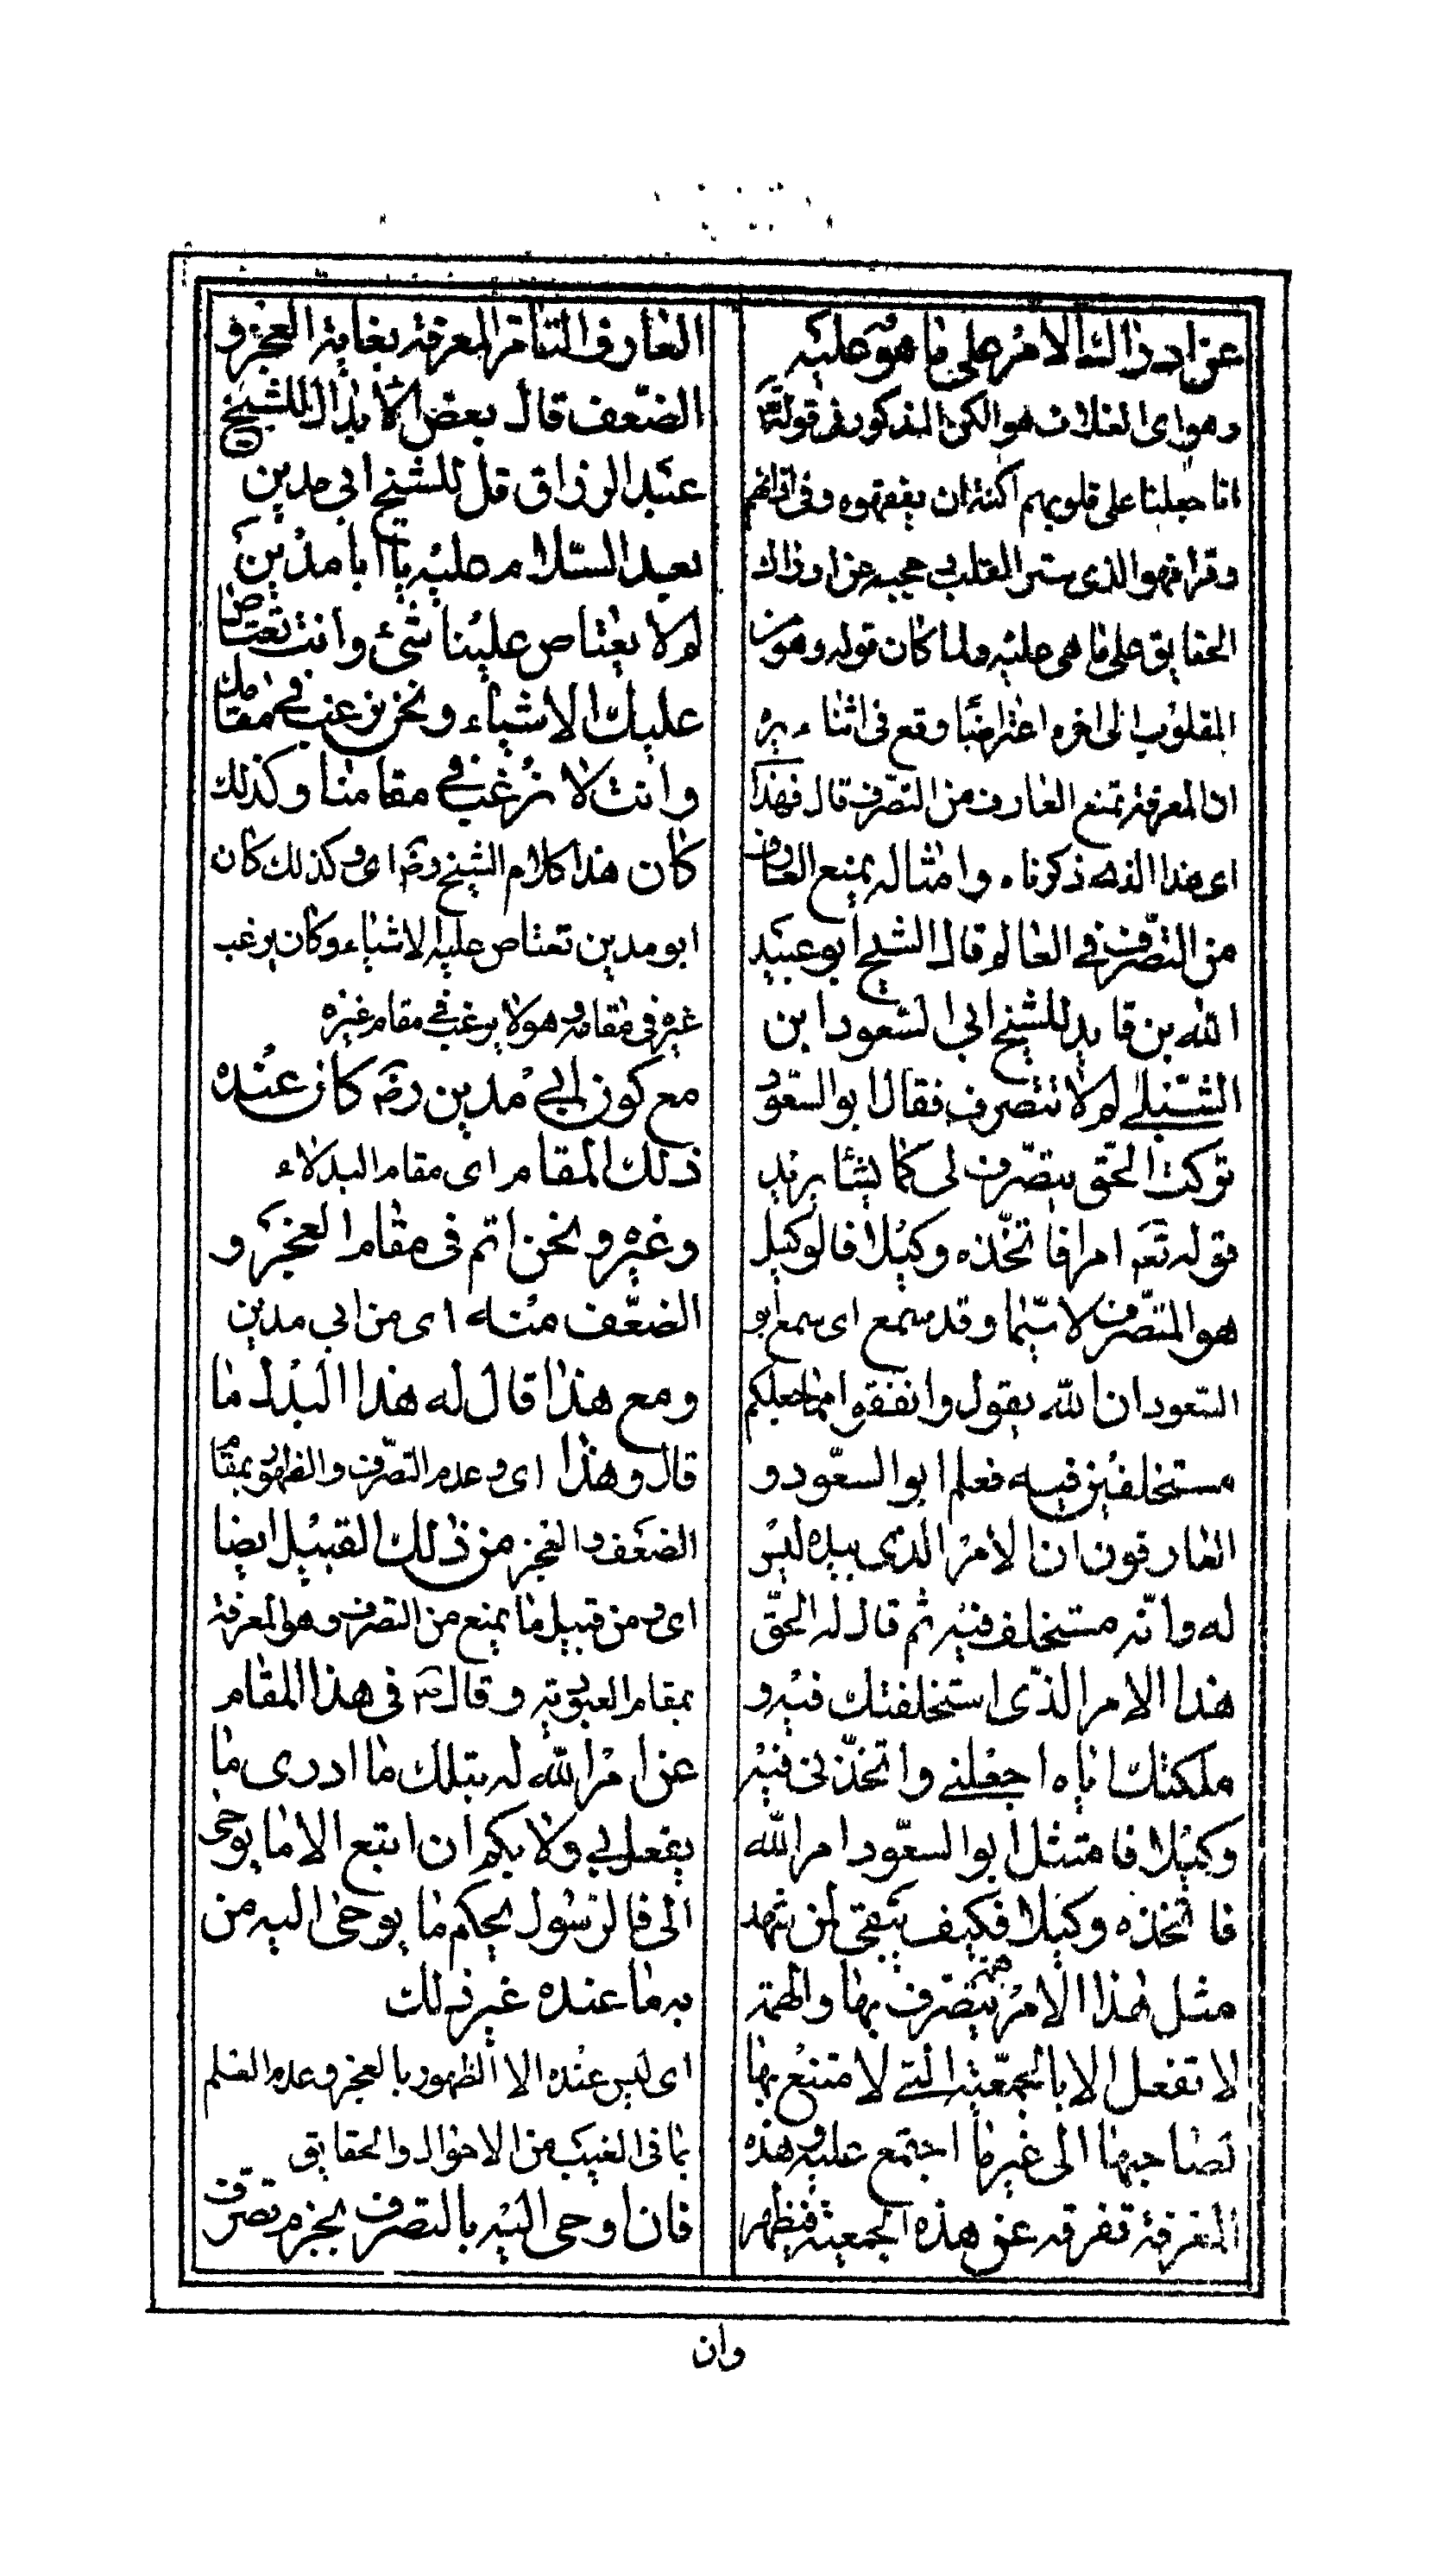 عن ادراك الامر على ما هو عليه
وهو اى الغلاف هو الكن المذكور فى قوله تعالى
انا جعلنا على قلوبهم اكنة ان يفقهوه وفى اذانهم
وقرا فهو الذى ستر القلب حجبه عن ادراك
الحقايق على ما هى عليه ولما كان قوله وهو من
القلوب الى اخره اعتراضيا وقع فى اثناء
ان المعرفة تمنع العارف من التصرف قال فهذا
اى هذا الذى ذكرناه وامثاله يمنع العارف
من التصرف فى العالم قال الشيخ ابو عبد
الله بن قايد للشيخ ابى السعود ابن
الشبلى لم لا تتصرف فقال ابو السعود
تركت الحق يتصرف لى كما يشا يريد
قوله تع امرا فاتخذه وكيلا فالوكيل
هو المتصرف لا سيما وقد سمع اى سمع ابو
السعود ان الله يقول وانفقوا مما جعلكم
مستخلفين فيه فعلم ابو السعود و
العارفون ان الامر الذى بيده ليس
له وانه مستخلف فيه ثم قال له الحق
هذا الامر الذى استخلفتك فيه و
ملكتك اياه اجعلنى واتخذنى فيه
وكيلا فامتثل ابو السعود امر الله
فاتخذه وكيلا فكيف يبقى لمن شهد
مثل هذا الامر همة يتصرف بها والهمة
لا تفعل الا بالجمعية التى لا متسع بها
لصاحبها الى غير ما اجتمع عليه وهذه
المعرفة تفرقه عن هذه الجمعية فيظهر
العارف التام المعرفة بغاية العجز و
الضعف قال بعض الابدال للشيخ
عبد الرزاق قل للشيخ ابى مدين
بعد السلام عليه يا ابا مدين
لم لا يعتاص علينا شئ وانت تعتاص
عليك الاشياء ونحن نرغب فى مقامك
وانت لا ترغب فى مقامنا وكذلك
كان هذا كلام الشيخ رض اى وكذلك كان
ابو مدين تعتاص عليه الاشياء وكان يرغب
غيره فى مقامه وهو لا يرغب فى مقام غيره
مع كون ابى مدين رض كان عنده
ذلك المقام اى مقام البدلاء
وغيره ونحن اتم فى مقام العجز و
الضعف منه اى من ابى مدين
ومع هذا قال له هذا البدل ما
قال وهذا اى وعدم التصرف والظهور بمقام
الضعف والعجز من ذلك القبيل ايضا
اى ومن قبيل ما يمنع من التصرف وهو المعرفة
بمقام العبودية وقال ص فى هذا المقام
عن امر الله له بتلك ما ادرى ما
يفعل بى ولا بكم ان اتبع الا ما يوحى
الى فالرسول يحكم ما يوحى اليه من
به ما عنده غير ذلك
اى ليس عنده الا الظهور بالعجز وعدم العلم
بما فى الغيب من الاحوال والحقايق
فان اوحى اليه بالتصرف بجزم تصرف
وان